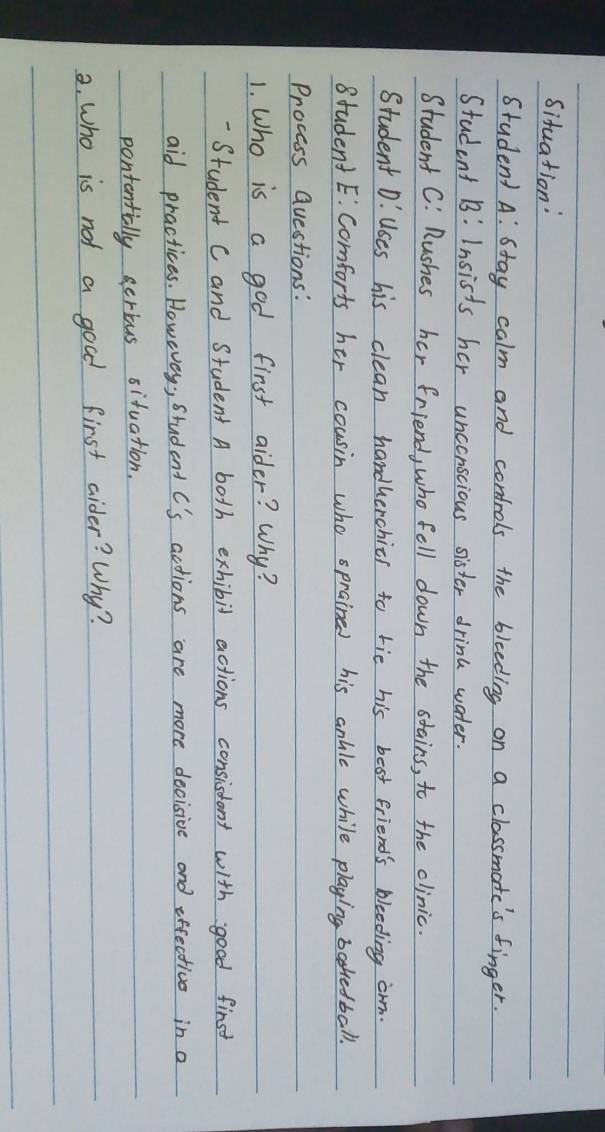 Situation:
Student A: Stay calm and controls the bleeding on a classmate's finger.
Student B: Insists her unconscious sister drink water.
Student C: Rushes her friend, who fell down the stairs, to the clinic.
Student D: Uses his clean handkerchief to tie his best friend's bleeding arm.
Student E: Comforts her cousin who sprained his ankle while playing basketball.
Process Questions:
1. Who is a god first aider? Why?
- Student C and Student A both exhibit actions consistent with good first
aid practices. However, Student C's actions are more decisive and effective in a
pontentially serious situation.
2. Who is not a good first aider? Why?